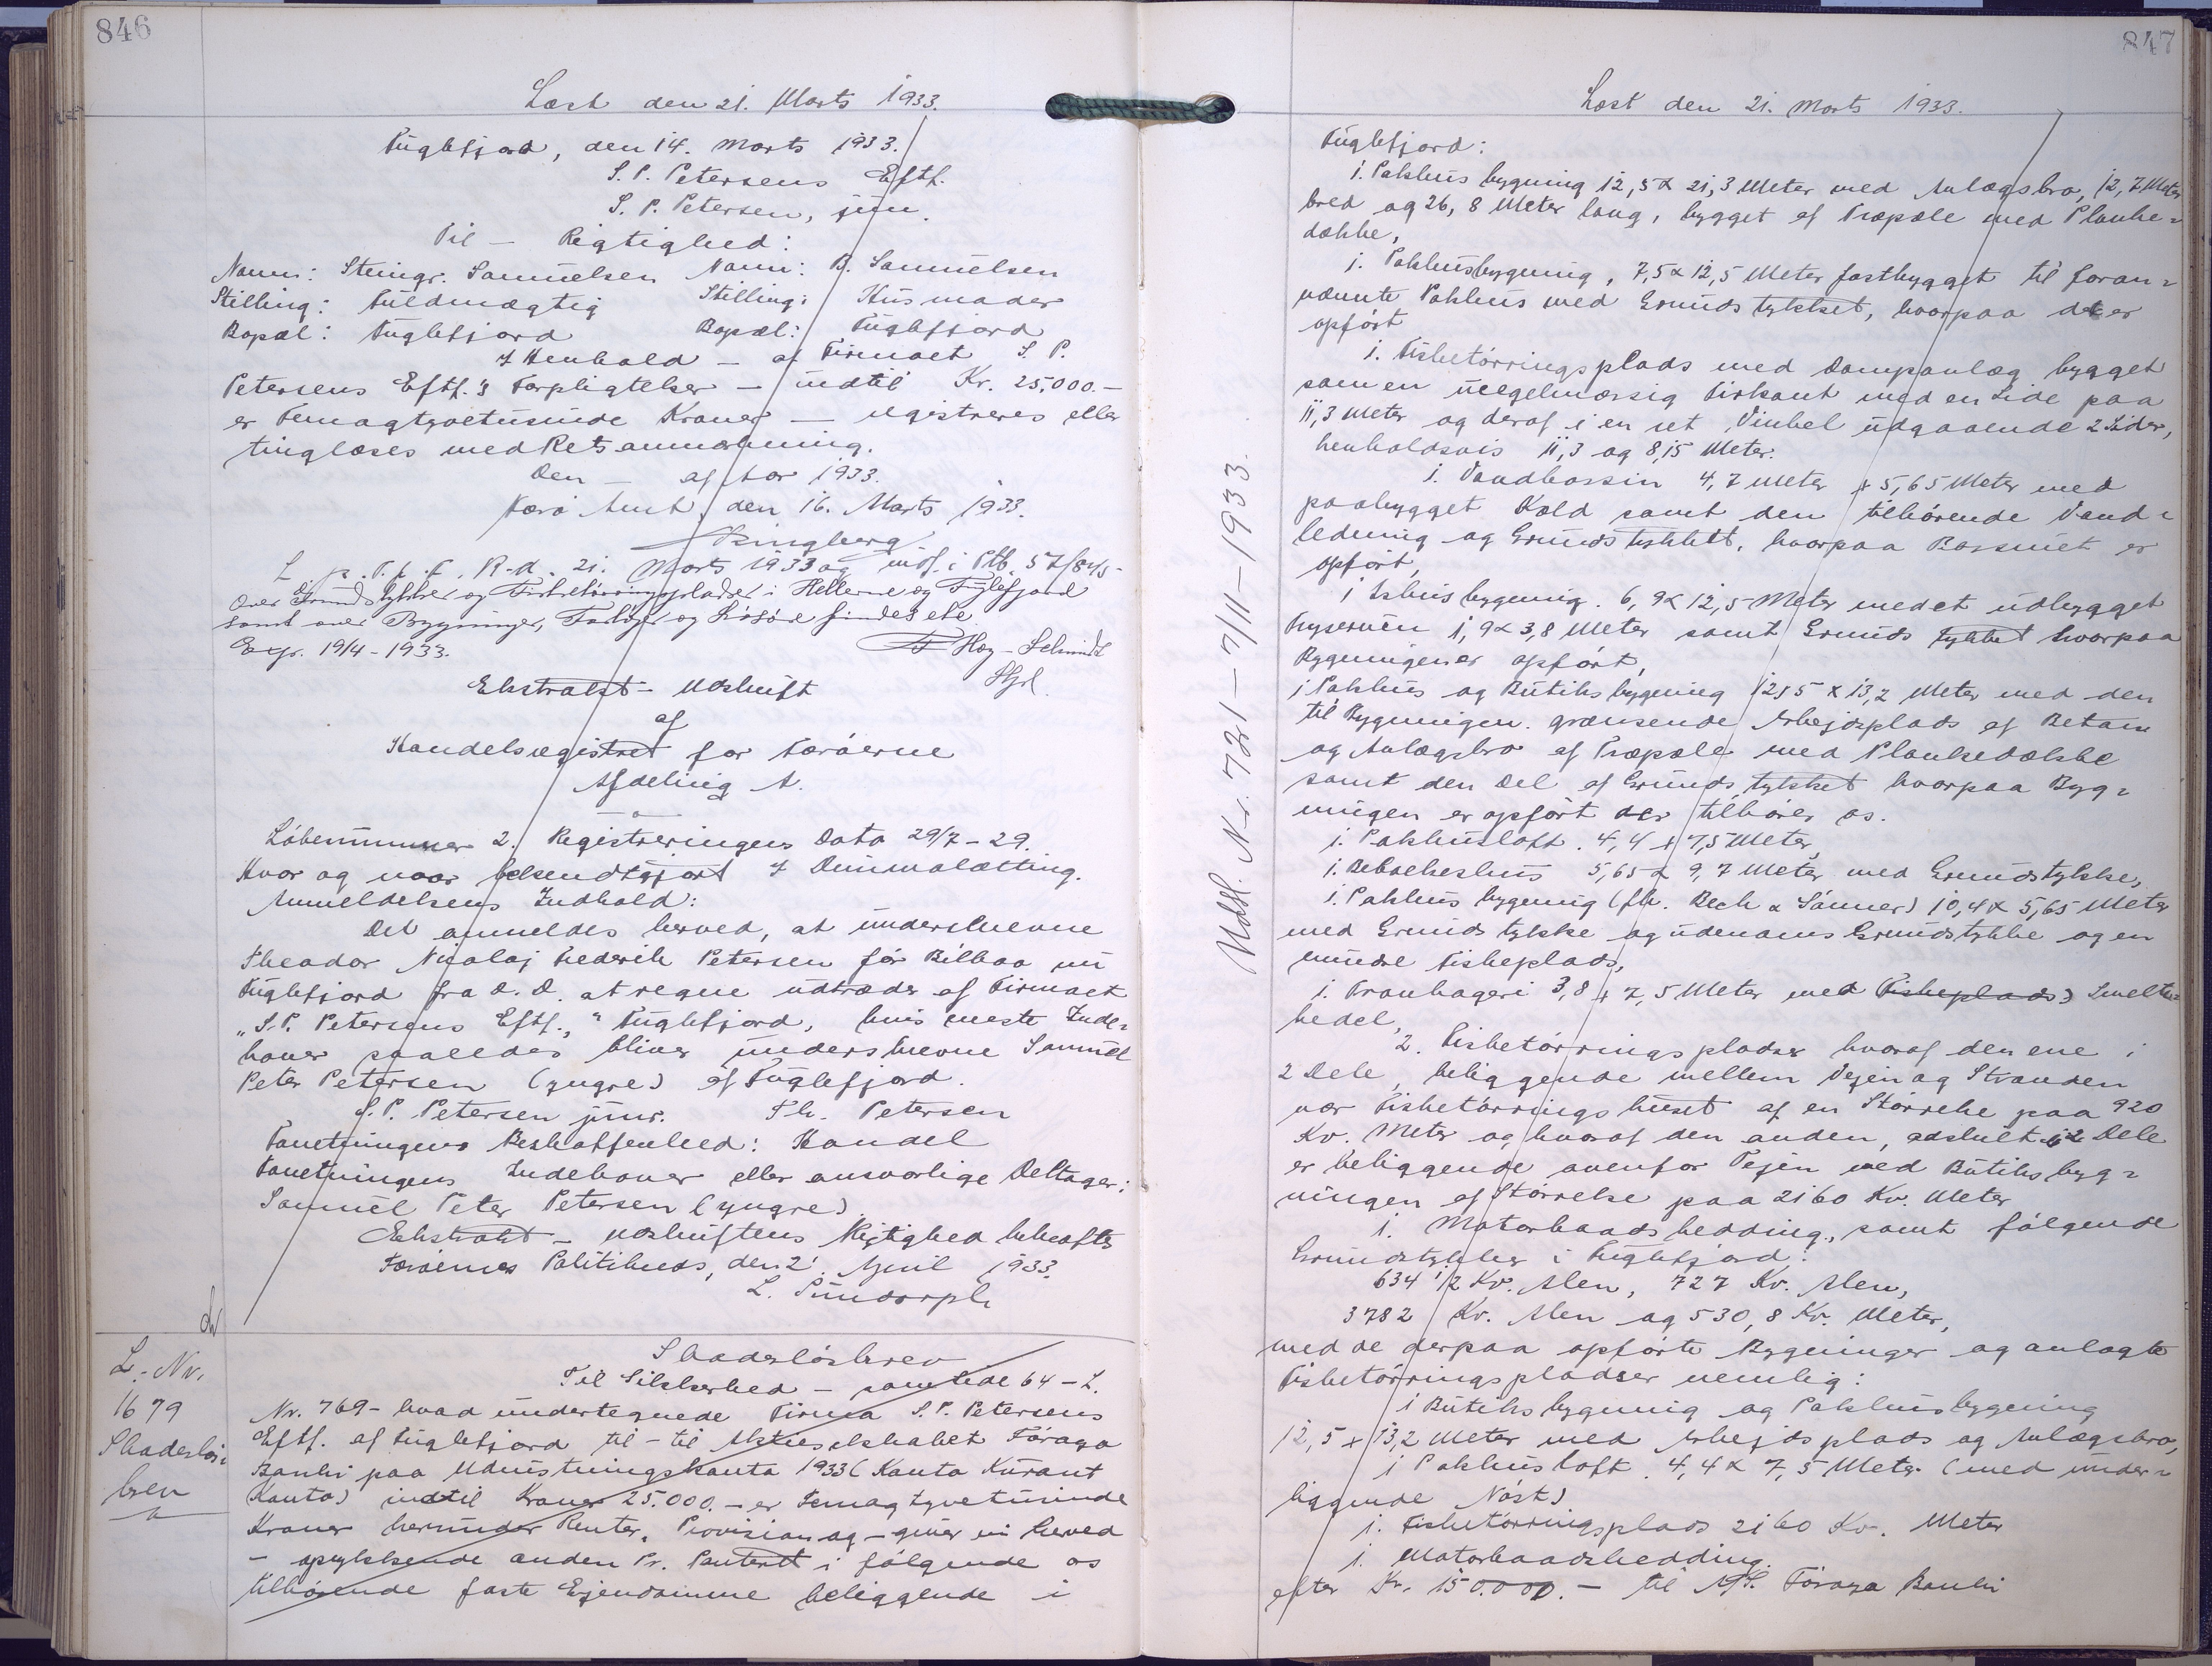 846
Læst den 21. Marts 1933.
Fuglefjord, den 14. Marts 1933.
S. P. Petersens Eftf.
S. P. Petersen, jun.
Til — Rigtighed:
Navn: Steingr. Samuelsen Navn: B. Samuelsen
Stilling: Fuldmægtig Stilling: Husmoder
Bopæl: Fuglefjord Bopæl: Fuglefjord
I Henhold — af Firmaet S. P.
Petersens Eftf.'s Forpligtelser — indtil Kr. 25,000.—
er Femogtyvetusinde Kroner — registreres eller
tinglæses med Rets anmærkning.
Den — 1933.
Færø Amt, den 16. Marts 1933.
Ringberg
L 21. Marts 1933 og indf. i Ptb. 57/845
over Grundstykker og Fisketørringspladser i Hellerne og Fuglefjord
samt over Bygninger, Fartøjer og Løsøre findes
Exp. 19/4-1933. Høy-Schmidt
Ekstrakt-Udskrift
af
Handelsregistret for Færøerne
Afdeling A.
Løbenummer 2. Registreringens Dato 29/7-29.
Hvor og naar bekendtgjort I Dimmalætting.
Anmeldelsens Indhold:
Det anmeldes herved, at underskrevne
Theodor Nicolaj Frederik Petersen før Bilbao nu
Fuglefjord fra d. D. at regne udtræder af Firmaet
„S. P. Petersens Eftf.," Fuglefjord, hvis eneste Inde-
haver saaledes bliver underskrevne Samuel
Peter Petersen (yngre) af Fuglefjord.
S. P. Petersen junr. Th. Petersen
Forretningens Beskaffenhed: Handel
Forretningens Indehaver eller ansvarlige Deltager:
Samuel Peter Petersen (yngre)
Ekstrakt-Udskriftens Rigtighed bekræftes
Færøernes Politikreds, den 2. April 1933.
L.-Nr.
1679
Skadesløs-
brev
Skadesløsbrev
Til Sikkerhed — samtlide 64-L.
Nr. 769- hvad undertegnede Firma S. P. Petersens
Eftf. af Fuglefjord til — til Aktieselskabet Føroya
Banki paa Udrustningskonto 1933 (Konto Kurant
Konto) indtil Kroner 25.000.— er Femogtyvetusinde
Kroner herunder Renter, Provision og — giver vi herved
— oprykkende anden Pr. Panteret i følgende os
tilhørende faste Ejendomme beliggende i
847
Læst den 21. Marts 1933.
Udsl. Nr. 721 — 7/11-1933.
Fuglefjord:
1. Pakhusbygning 12,5 x 21,3 Meter med Anlægsbro, 12,7 Meter
bred og 26,8 Meter lang, bygget af Træpæle med Planke-
dække,
1. Pakhusbygning, 7,5 x 12,5 Meter fastbygget til foran-
nævnte Pakhus med Grundstykket, hvorpaa det er
opført
1. Fisketørringsplads med Dampanlæg bygget
som en uregelmæssig Firkant med en Side paa
11,3 Meter og deraf i en ret Vinkel udgaaende 2 Sider,
henholdsvis 11,3 og 8,15 Meter.
1. Vandbassin 4,7 Meter x 5,65 Meter med
paabygget Kold samt den tilhørende Vand-
ledning og Grundstykket, hvorpaa Bassinet er
opført,
1 Ishusbygning. 6,9 x 12,5 Meter med et udbygget
Fryserum 1,9 x 3,8 Meter samt Grundstykket hvorpaa
Bygningen er opført,
1 Pakhus og Butiksbygning 12,5 x 13,2 Meter med den
til Bygningen. grænsende Arbejdsplads af Beton
og Anlægsbro af Træpæle med Plankedække
samt den Del af Grundstykket hvorpaa Byg-
ningen er opført der tilhører os.
1. Pakhusloft. 4,4 x 7,5 Meter,
1. Beboelseshus 5,65 x 9,7 Meter med Grundstykke,
1. Pakhusbygning (fh. Bech & Sønner) 10,4 x 5,65 Meter
med Grundstykke og udenoms Grundstykke og en
mindre Fiskeplads,
1. Trankogeri 3,8 x 7,5 Meter med Fiskeplads) Smelte-
kedel,
2. Fisketørringspladser hvoraf den ene i
2 Dele, beliggende mellem Vejen og Stranden
nær Fisketørringshuset af en Størrelse paa 920
Kv. Meter og hvoraf den anden, adskilt i 2 Dele
er beliggende ovenfor Vejen ved Butiksbyg-
ningen af Størrelse paa 2160 Kv. Meter
1. Motorbaadsbedding, samt følgende
Grundstykker i Fuglefjord:
634 1/2 Kv. Alen, 727 Kv. Alen,
3782 Kv. Alen og 530,8 Kv. Meter,
med de derpaa opførte Bygninger og anlagte
Fisketørringspladser nemlig:
1 Butiksbygning og Pakhusbygning
12,5 x 13,2 Meter med Arbejdsplads og Anlægsbro,
1 Pakhusloft. 4,4 x 7,5 Meter (med under-
liggende Nøst)
1. Fisketørringsplads 2160 Kv. Meter
1. Motorbaadsbedding.
efter Kr. 150.000.— til A/S. Føroya Banki